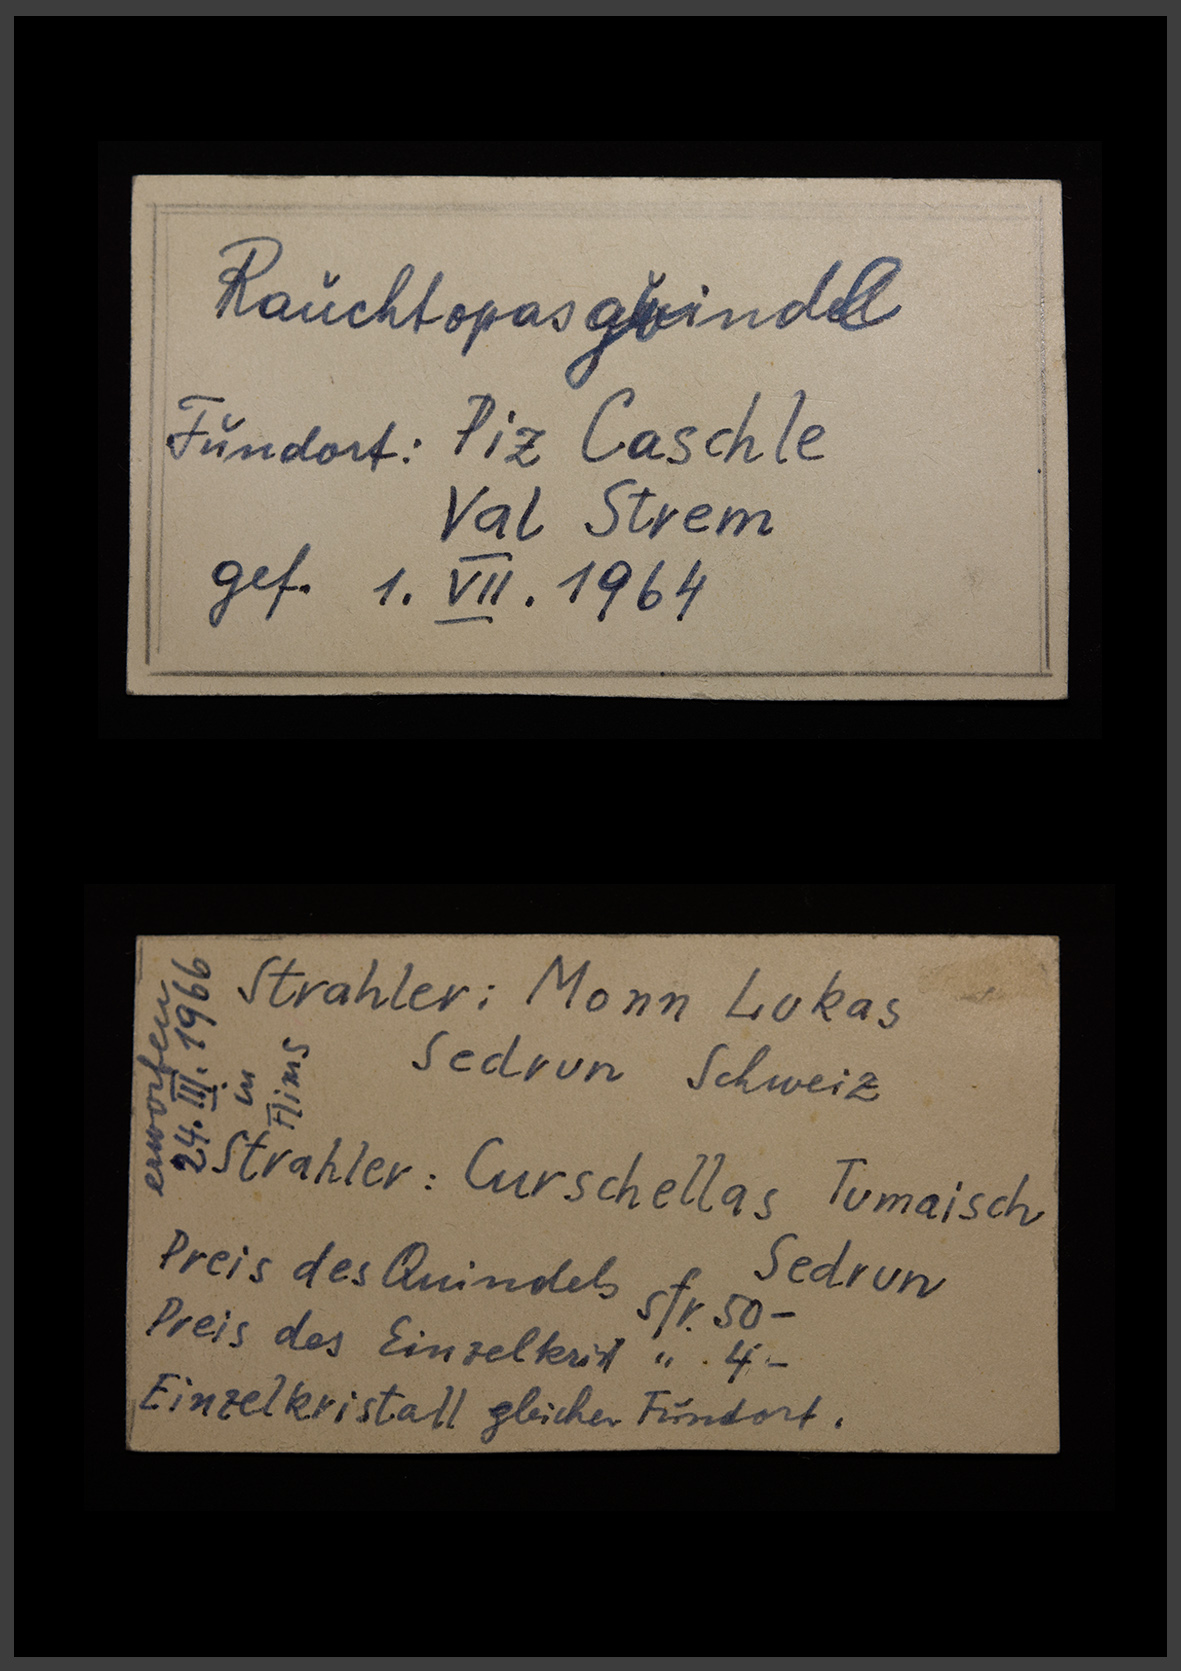 Rauchtopasgwindel
Fundort: Piz Caschle
Val Strem
gef. 1. VII. 1964
erworben
24. III. 1966
in
Flims
Strahler: Monn Lukas
Sedrun Schweiz
Strahler: Curschellas Tumaisch
Sedrun
Preis des Quindels sfr. 50-
Preis des Einzelkrist " . 4.-
Einzelkristall gleicher Fundort.